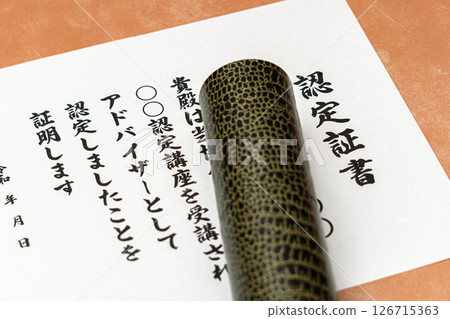 認定証書
◯
貴殿は当
講座を受講され
◯◯認定
アドバイザーとして
認定しましたことを
証明します
令和 年 月 日
126715363